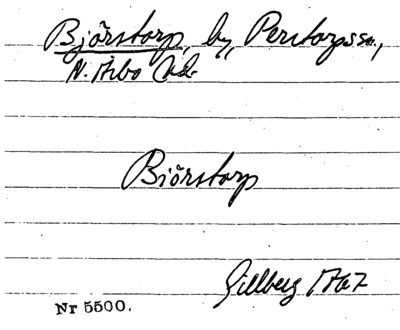 Björstorp, by, Perstorps sn,
N. Åsbo hd.
Biörstorp
Gillberg 1767
Nr 5500.